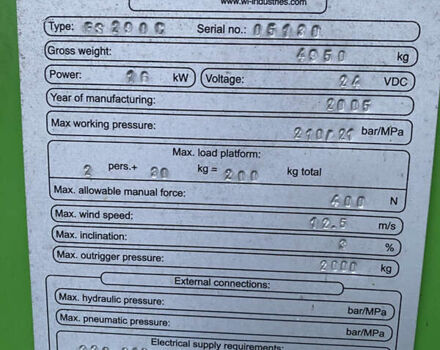 www.wi-industries.com
Type: ES290C Serial no.: 05130
Gross weight: 4950 kg
Power: 26 kW Voltage: 24 VDC
Year of manufacturing: 2005
Max working pressure: 210/21 bar/MPa
Max. load platform:
2 pers.+ 30 kg = 200 kg total
Max. allowable manual force: 400 N
Max. wind speed: 12.5 m/s
Max. inclination: 3 %
Max. outrigger pressure: 2000 kg
External connections:
Max. hydraulic pressure: bar/MPa
Max. pneumatic pressure: bar/MPa
Electrical supply requirements: